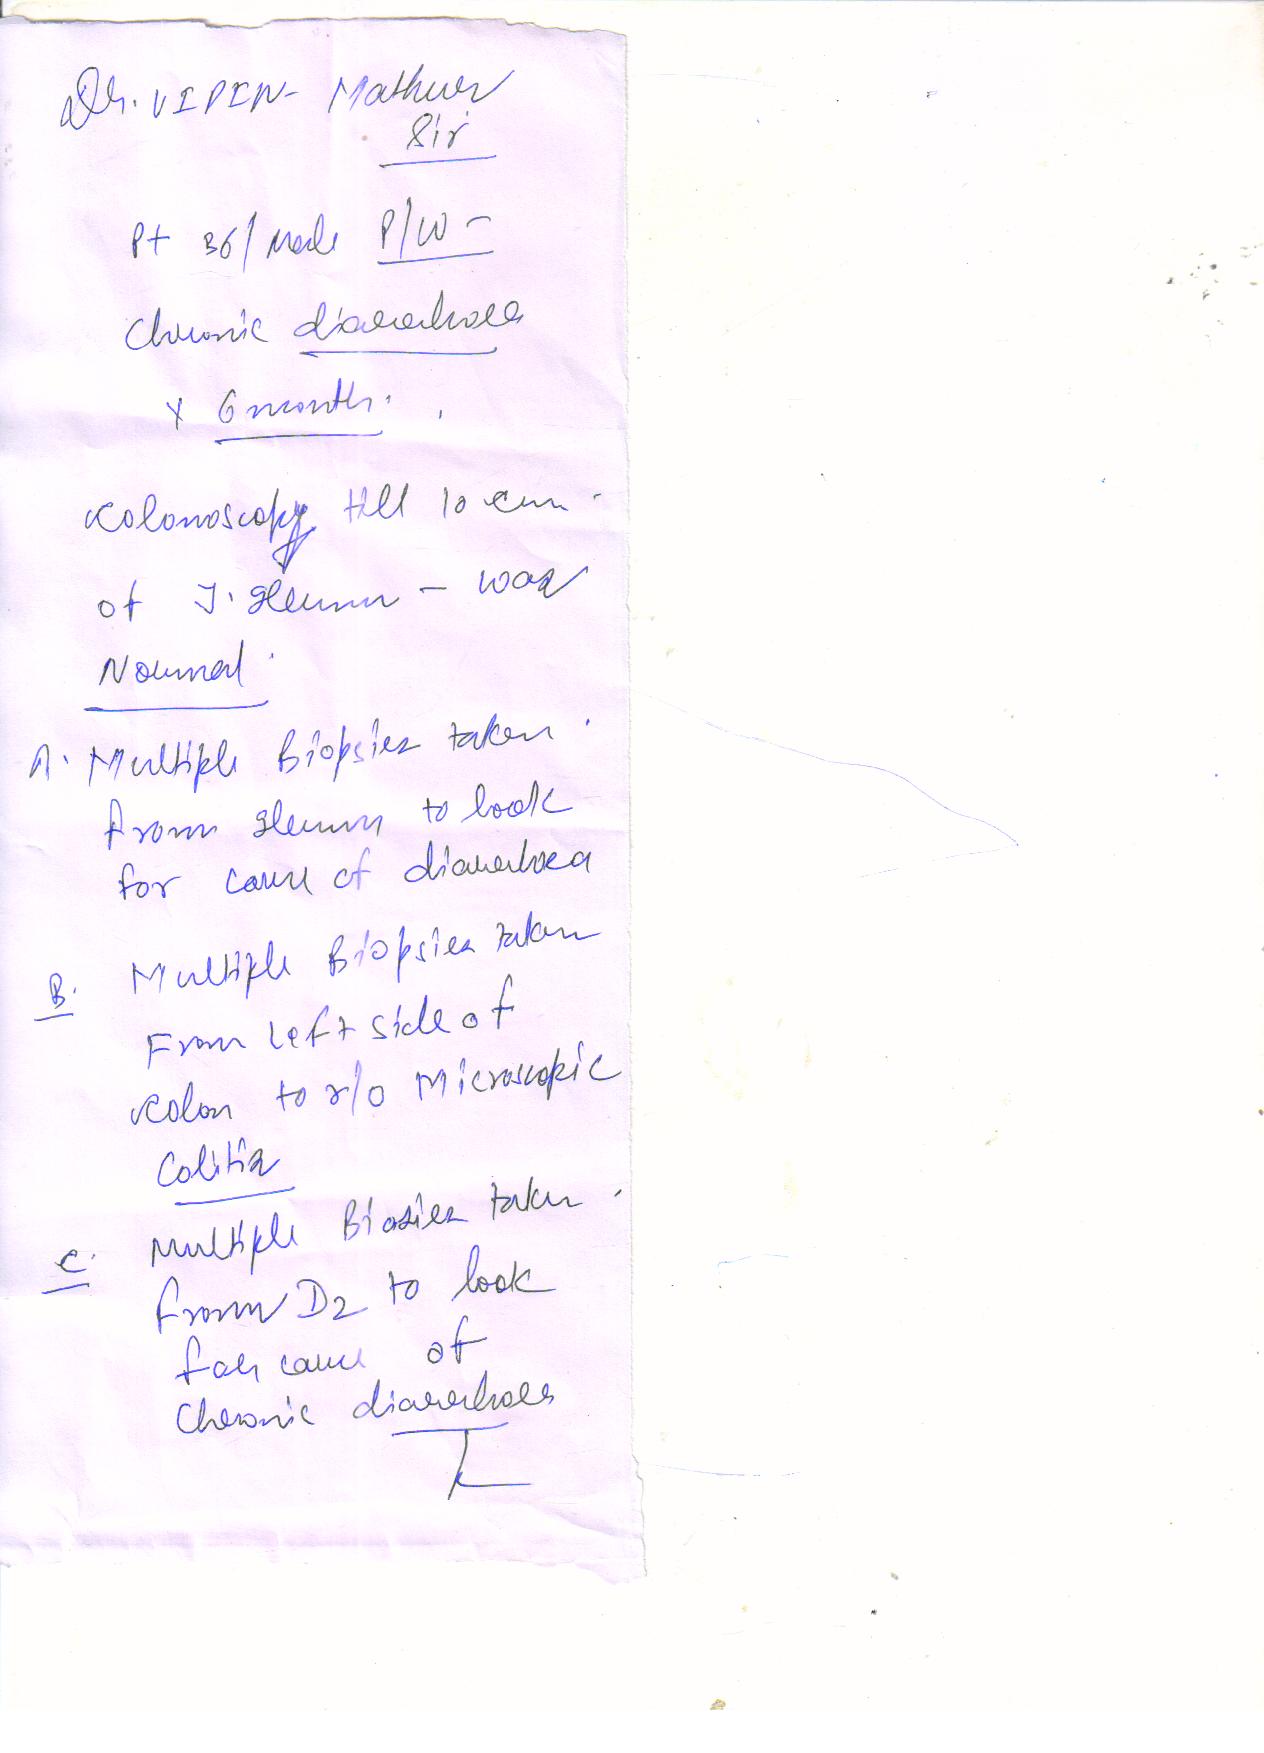 Dr. VIPIN - Mathur
Sir
Pt 36/Male P/W -
Chronic diarrhoea
x 6 month.
Colonoscopy till 10 cm
of T. Ileum - was
Normal.
A. Multiple Biopsies taken
from Ileum to look
for cause of diarrhoea
B. Multiple Biopsies taken
From Left side of
Colon to r/o Microscopic
Colitis
C. Multiple Biosies taken
from D2 to look
for cause of
Chronic diarrhoea